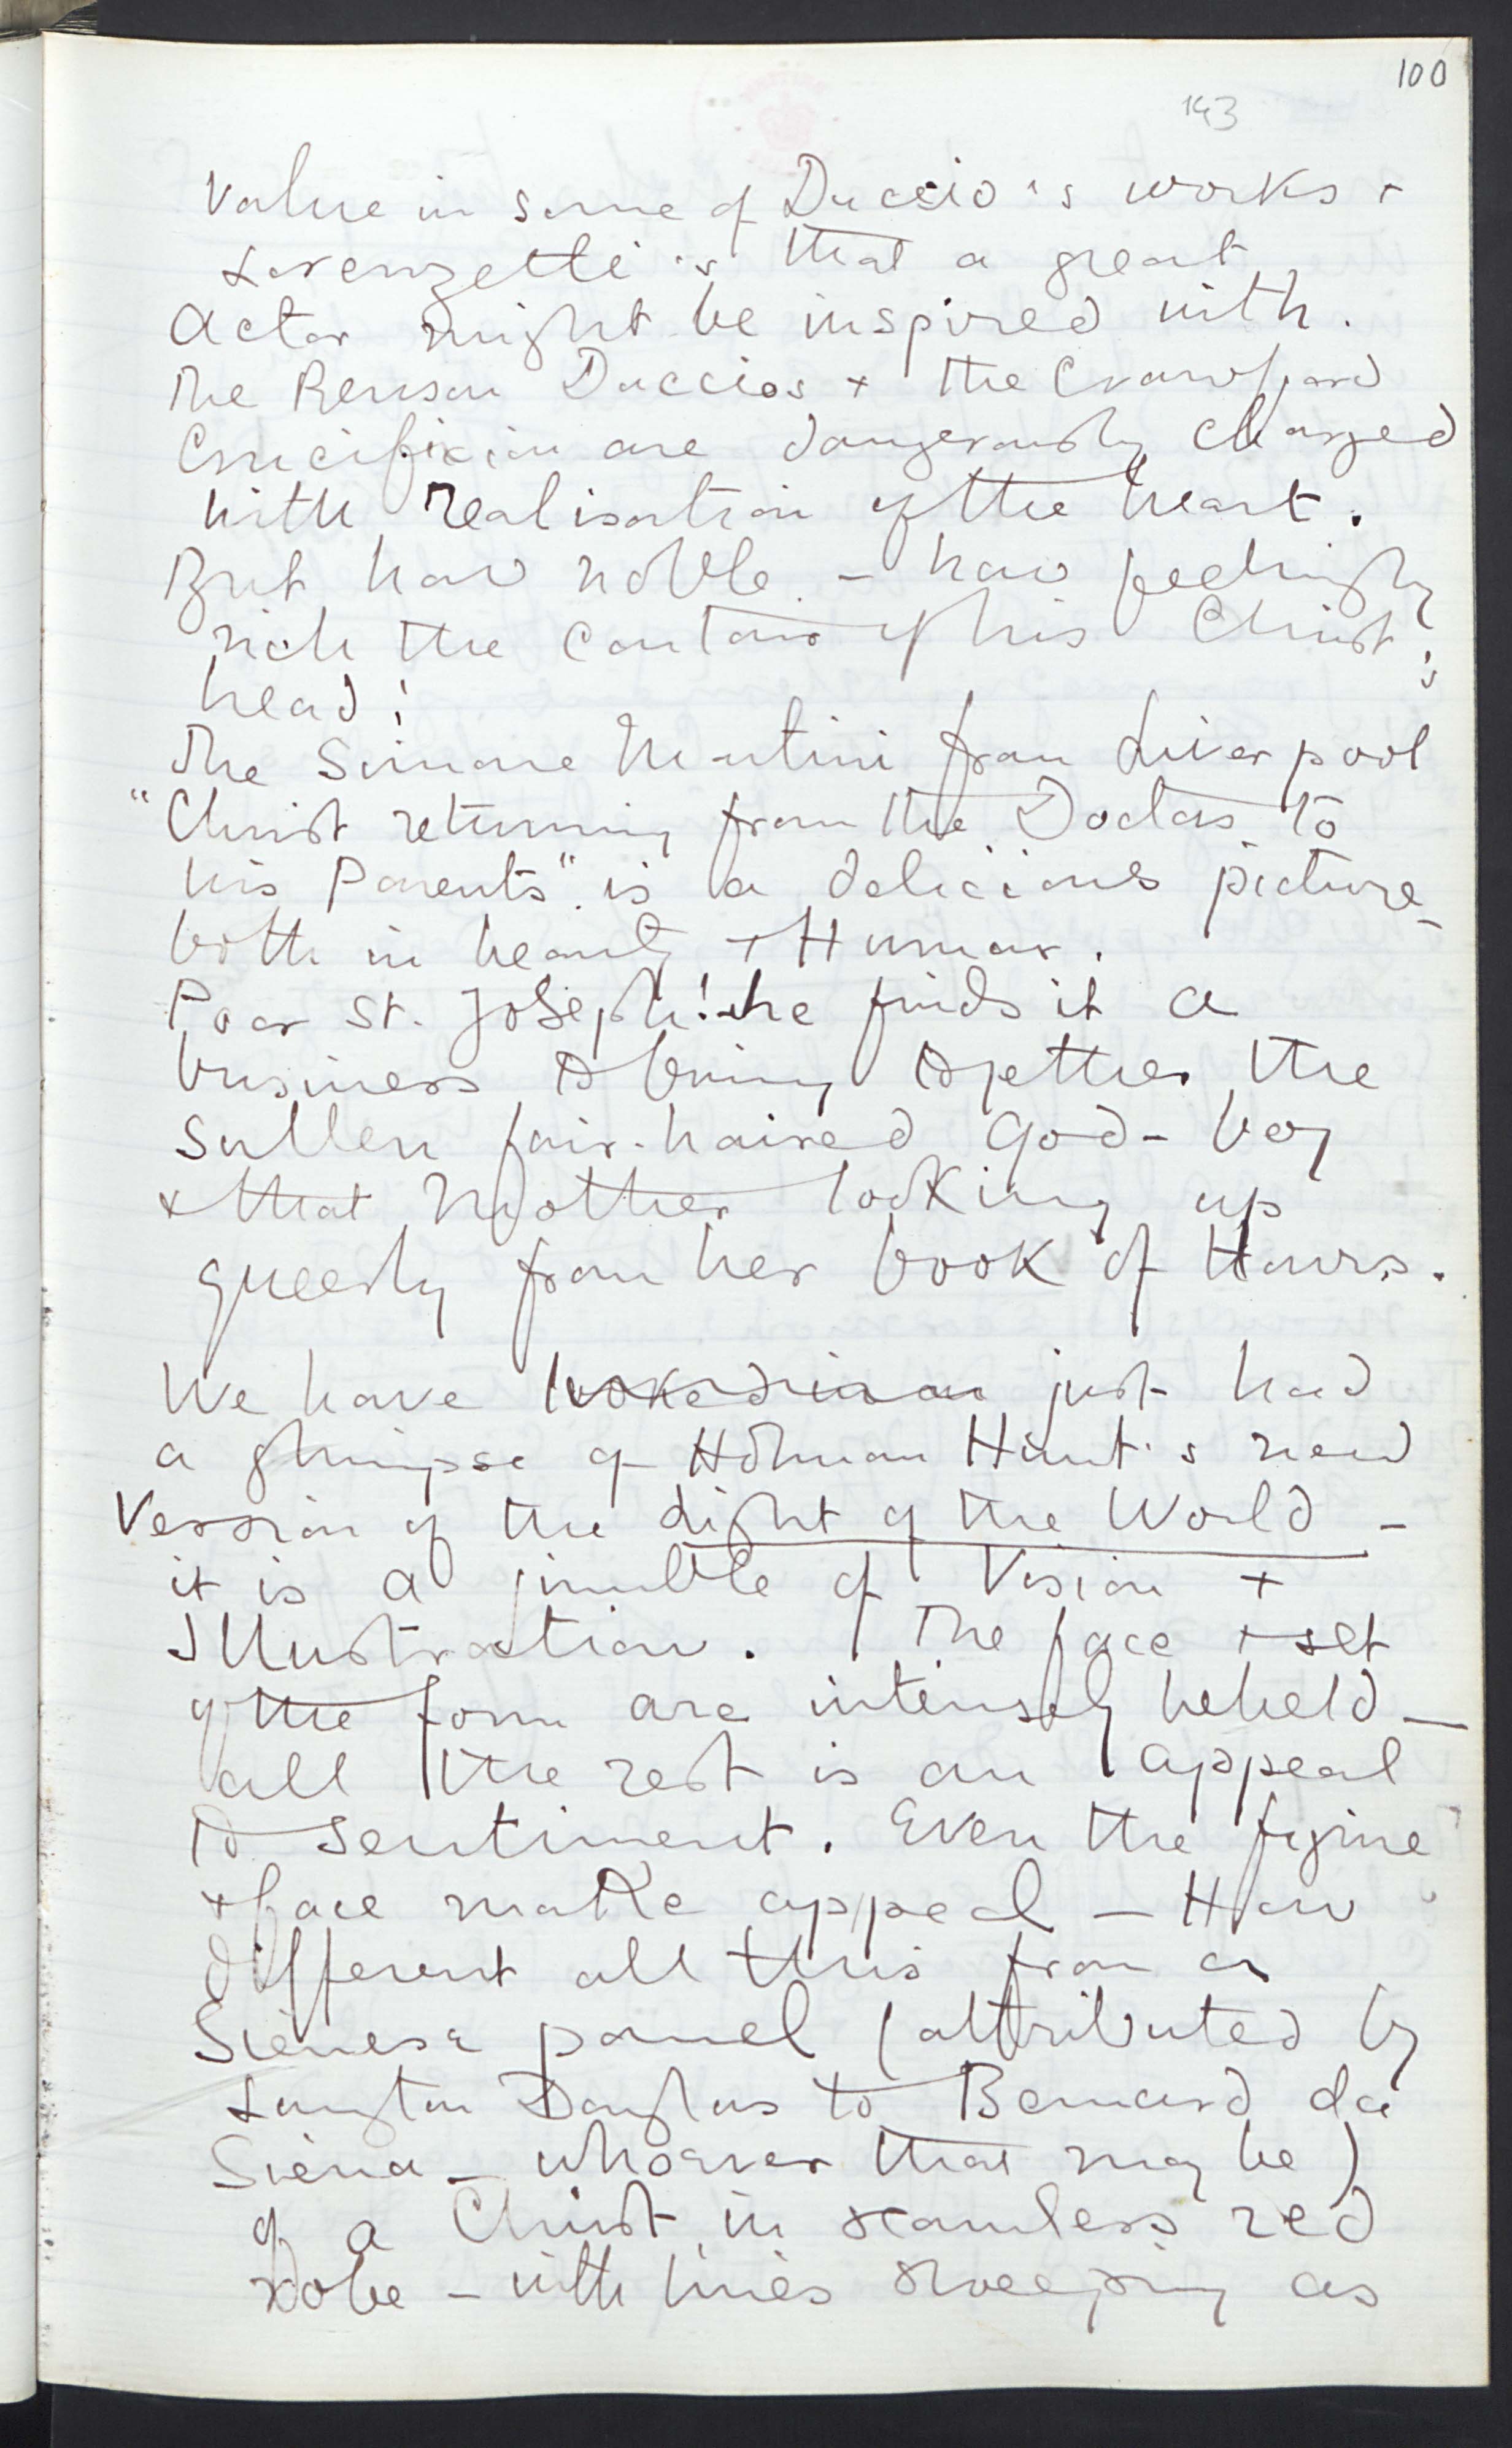 100
143
Value in some of Duccio's works +
Lorenzetti's that a great
Actor might be inspired with.
The Benson Duccios + the Crawford
Crucifixion are dangerously charged
with realisation of the heart.
But how noble - how feelingly
rich the contour of his Christ's
head!
The Simone Martini from Liverpool
"Christ returning from the Doctors to
his Parents" is a delicious picture -
both in beauty + Humour.
Poor St. Joseph! he finds it a
business to bring together the
sullen fair-haired God-boy
+ that Mother looking up
queerly from her book of Hours.
We have looked in on just had
a glimpse of Holman Hunt's new
Version of the Light of the World -
it is a jumble of Vision +
Illustration. The face + set
of the form are intensely beheld -
all the rest is an appeal
to sentiment. Even the figure
+ face make appeal - How
different all this from a
Sienese panel (attributed by
Langton Douglas to Bernard da
Siena - whoever that may be)
of a Christ in seamless red
robe - with lines sweeping as